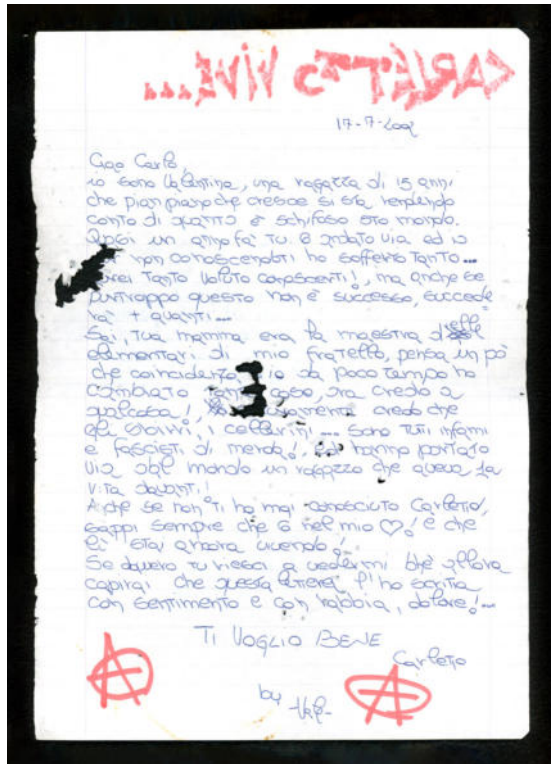 CARLETTO VIVE....
17-7-2002
Ciao Carlo,
io sono Valentina, una ragazza di 15 anni
che pian piano che cresce si sta rendendo
conto di quanto è schifoso sto mondo.
Quasi un anno fa tu 6 andato via ed io
non conoscendoti ho sofferto tanto...
tanto voluto conoscerti!, ma anche se
purtroppo questo non è successo, succede
rà! + quanti...
Sai, tua mamma era la maestra delle
elementari di mio fratello, pensa un pò
che coincidenza io da poco tempo ho
cambiato cose, ora credo a
qualcosa!, credo che
gli sbirri, i cellerini... sono tutti infami
e fascisti di merda!, hanno portato
via dal mondo un ragazzo che aveva la
vita davanti!
Anche se non ti ho mai conosciuto Carletto,
sappi sempre che 6 nel mio ♡! e che
lì stai ancora vivendo!
Se davvero tu riesci a vedermi bhè allora
capirai che questa lettera l'ho scritta
con sentimento e con rabbia, dolore!...
TI VOGLIO BENE
Carletto
by
Vale-